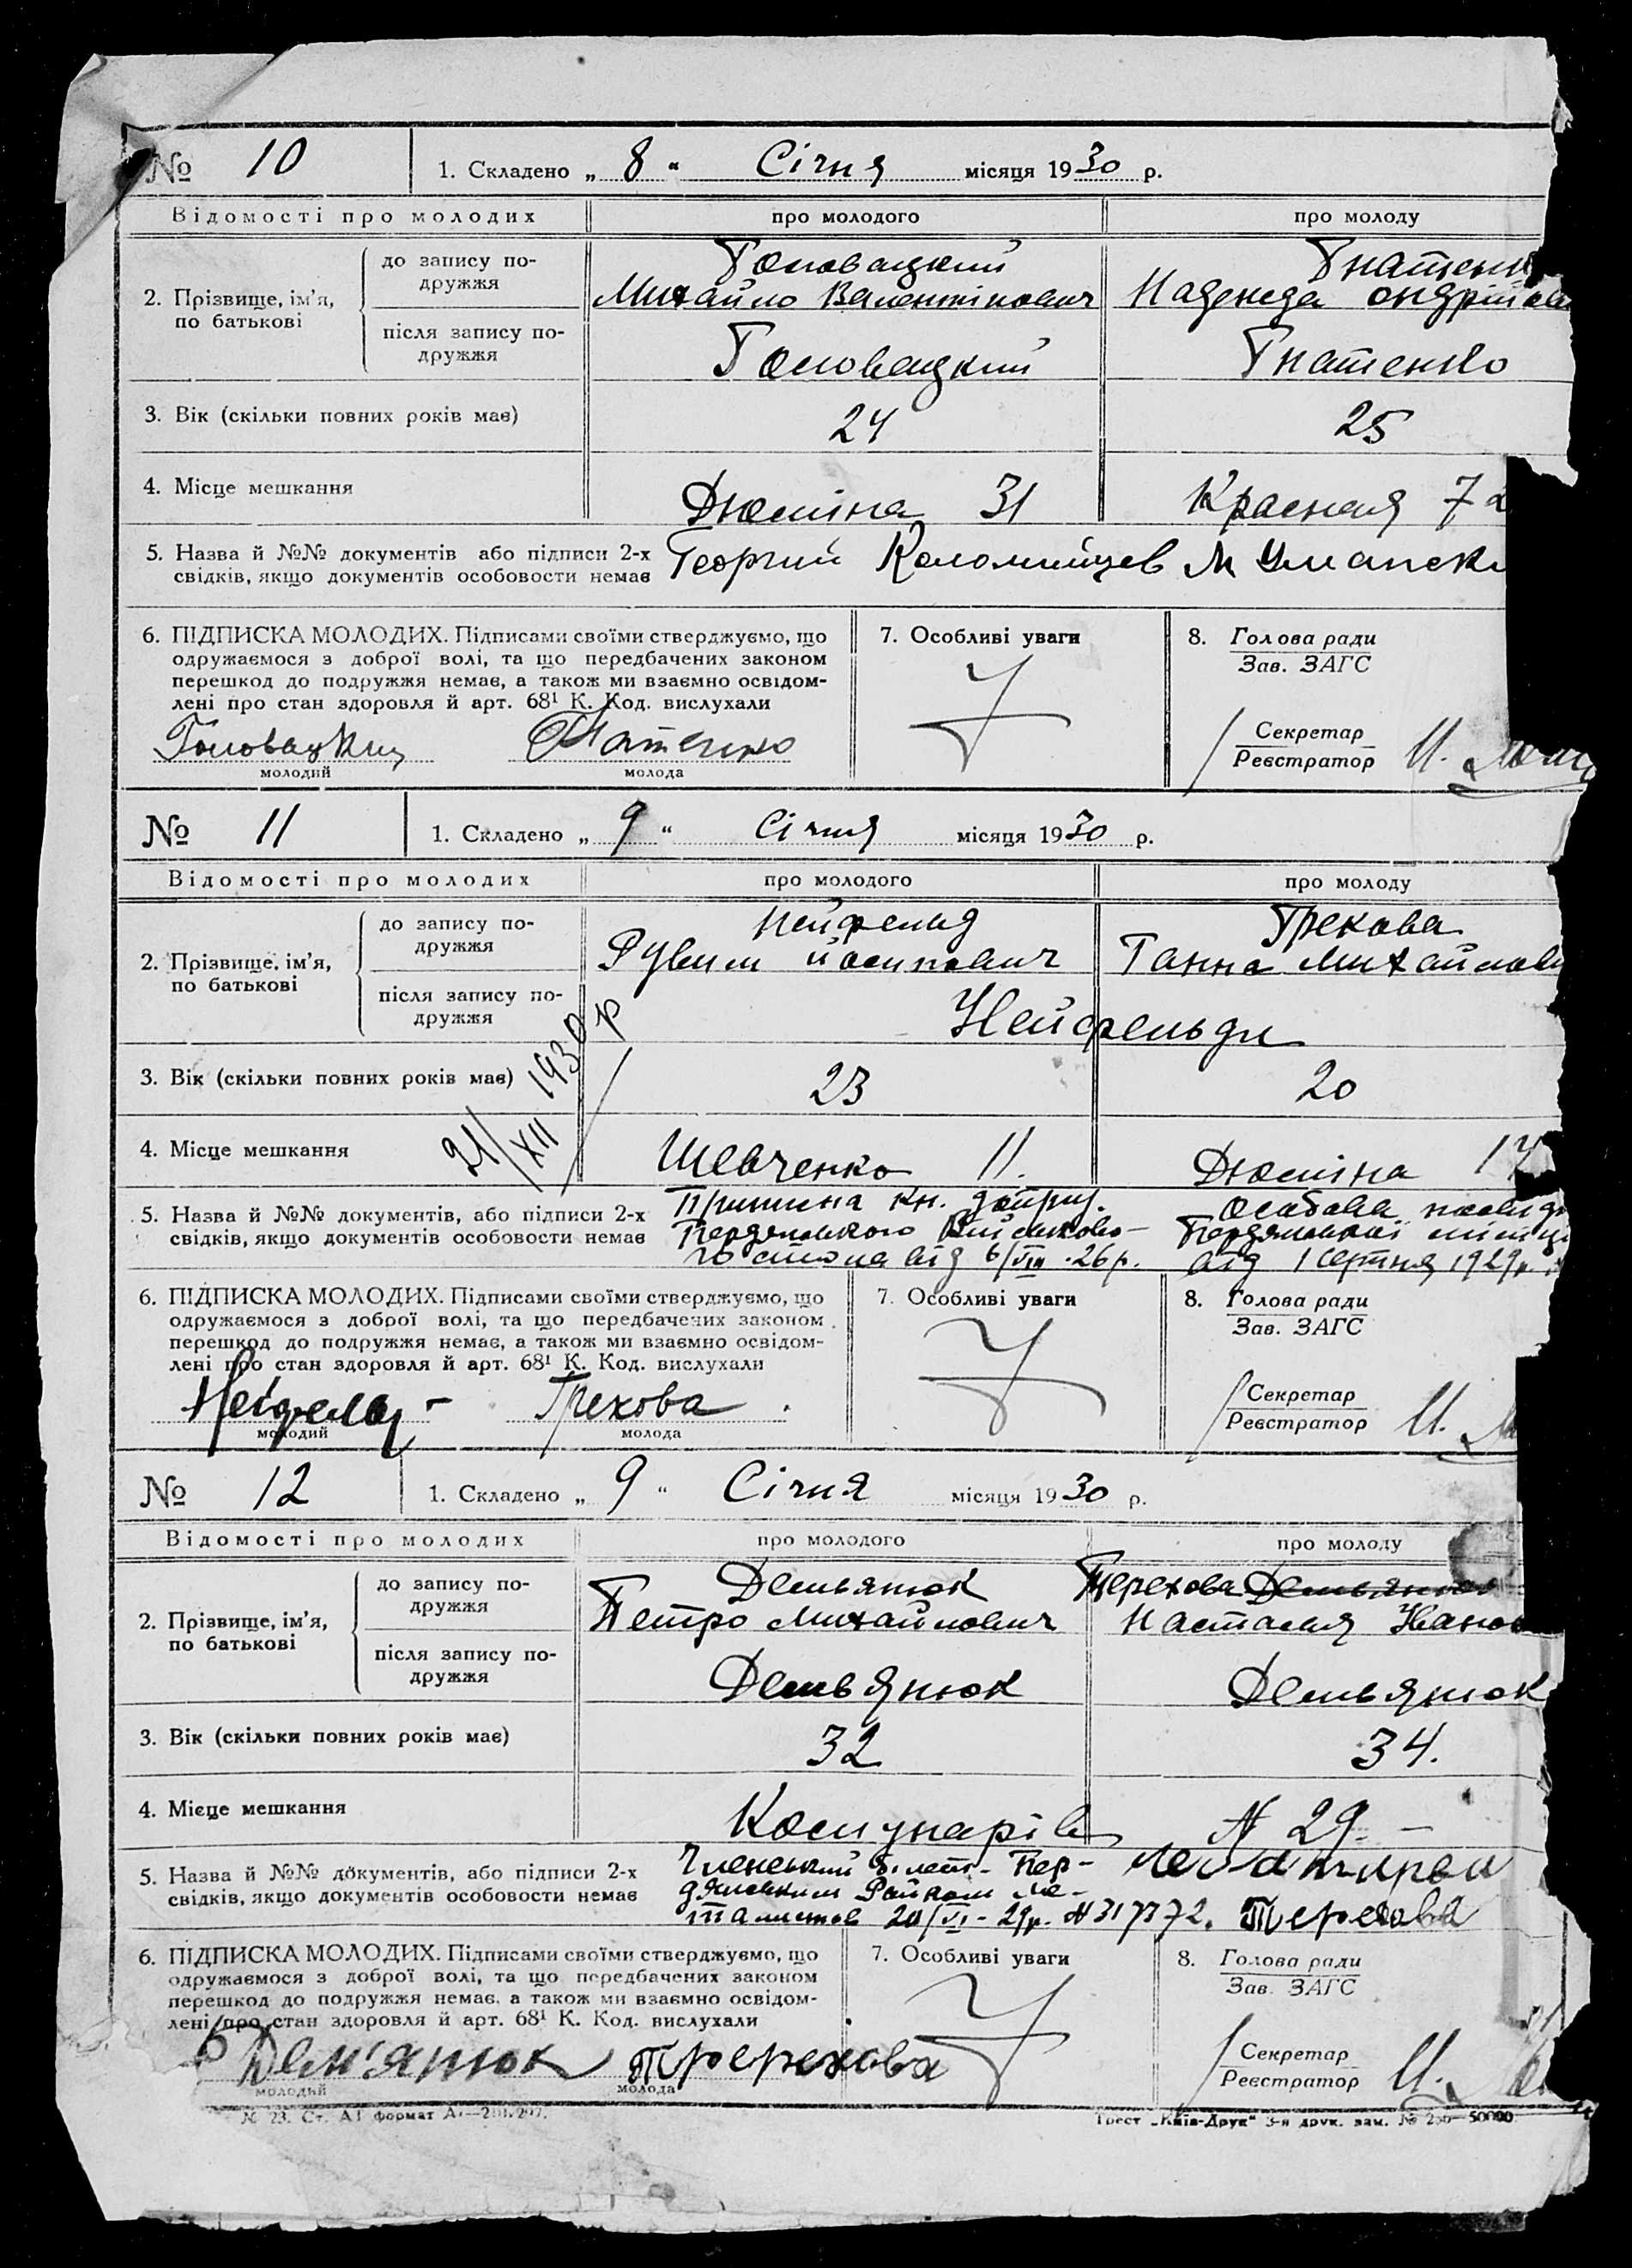 № 10 1. Складено „ 8 “ Січня місяця 1930 р.
Відомості про молодих про молодого про молоду
2. Прізвище, ім’я, по батькові
до запису подружжя
Головацкий Гнатенк
Михайло Валентінович Надежда Ондріїв
після запису подружжя
Головацкий Гнатенко
3. Вік (скільки повних років має) 24 25
4. Місце мешкання Дюміна 31 Красная 72
5. Назва й №№ документів або підписи 2-х Георгий Коломийцев М Уманск
свідків, якщо документів особовости немає
6. ПІДПИСКА МОЛОДИХ. Підписами своїми стверджуємо, що 7. Особливі уваги 8. Голова ради
одружаємося з доброї волі, та що передбачених законом Зав. ЗАГС
перешкод до подружжя немає, а також ми взаємно освідом-
лені про стан здоровля й арт. 68¹ К. Код. вислухали
Головацкий Гнатенко Секретар
молодий молода Реєстратор И.
№ 11 1. Складено „ 9 “ Січня місяця 1930 р.
Відомості про молодих про молодого про молоду
2. Прізвище, ім’я, по батькові
до запису подружжя
Нейфельд Грекова
Рувим Йосипович Ганна Михайлов
після запису подружжя
Нейфельди
3. Вік (скільки повних років має) 23 20
21/XII 1930 р
4. Місце мешкання Шевченко 11. Дюміна 17
5. Назва й №№ документів, або підписи 2-х Припісна кн. доприз. Особова посвід
свідків, якщо документів особовости немає Бердянського Військово- Бердянської міліц
го стола від 6/VIII 26 р. від 1 серпня 1929 р.
6. ПІДПИСКА МОЛОДИХ. Підписами своїми стверджуємо, що 7. Особливі уваги 8. Голова ради
одружаємося з доброї волі, та що передбачених законом Зав. ЗАГС
перешкод до подружжя немає, а також ми взаємно освідом-
лені про стан здоровля й арт. 68¹ К. Код. вислухали
Нейфельд Грекова Секретар
молодий молода Реєстратор И.
№ 12 1. Складено „ 9 “ Січня місяця 1930 р.
Відомості про молодих про молодого про молоду
2. Прізвище, ім’я, по батькові
до запису подружжя
Демьянюк Терехова Демьянюк
Петро Михайлович Настасия Іванов
після запису подружжя
Демьянюк Демьянюк
3. Вік (скільки повних років має) 32 34.
4. Місце мешкання Комунарів № 29.
5. Назва й №№ документів, або підписи 2-х Членський білет Бер-
свідків, якщо документів особовости немає дянським Райком Ме-
талистов 20/VI - 29 р. № 317372. Терехова
6. ПІДПИСКА МОЛОДИХ. Підписами своїми стверджуємо, що 7. Особливі уваги 8. Голова ради
одружаємося з доброї волі, та що передбачених законом Зав. ЗАГС
перешкод до подружжя немає, а також ми взаємно освідом-
лені про стан здоровля й арт. 68¹ К. Код. вислухали
Дем'янюк Терехова Секретар
молодий молода Реєстратор И.
№ 23. Ст. А1 формат Трест „Київ-Друк“ 3-я друк. зам. № 250—50000